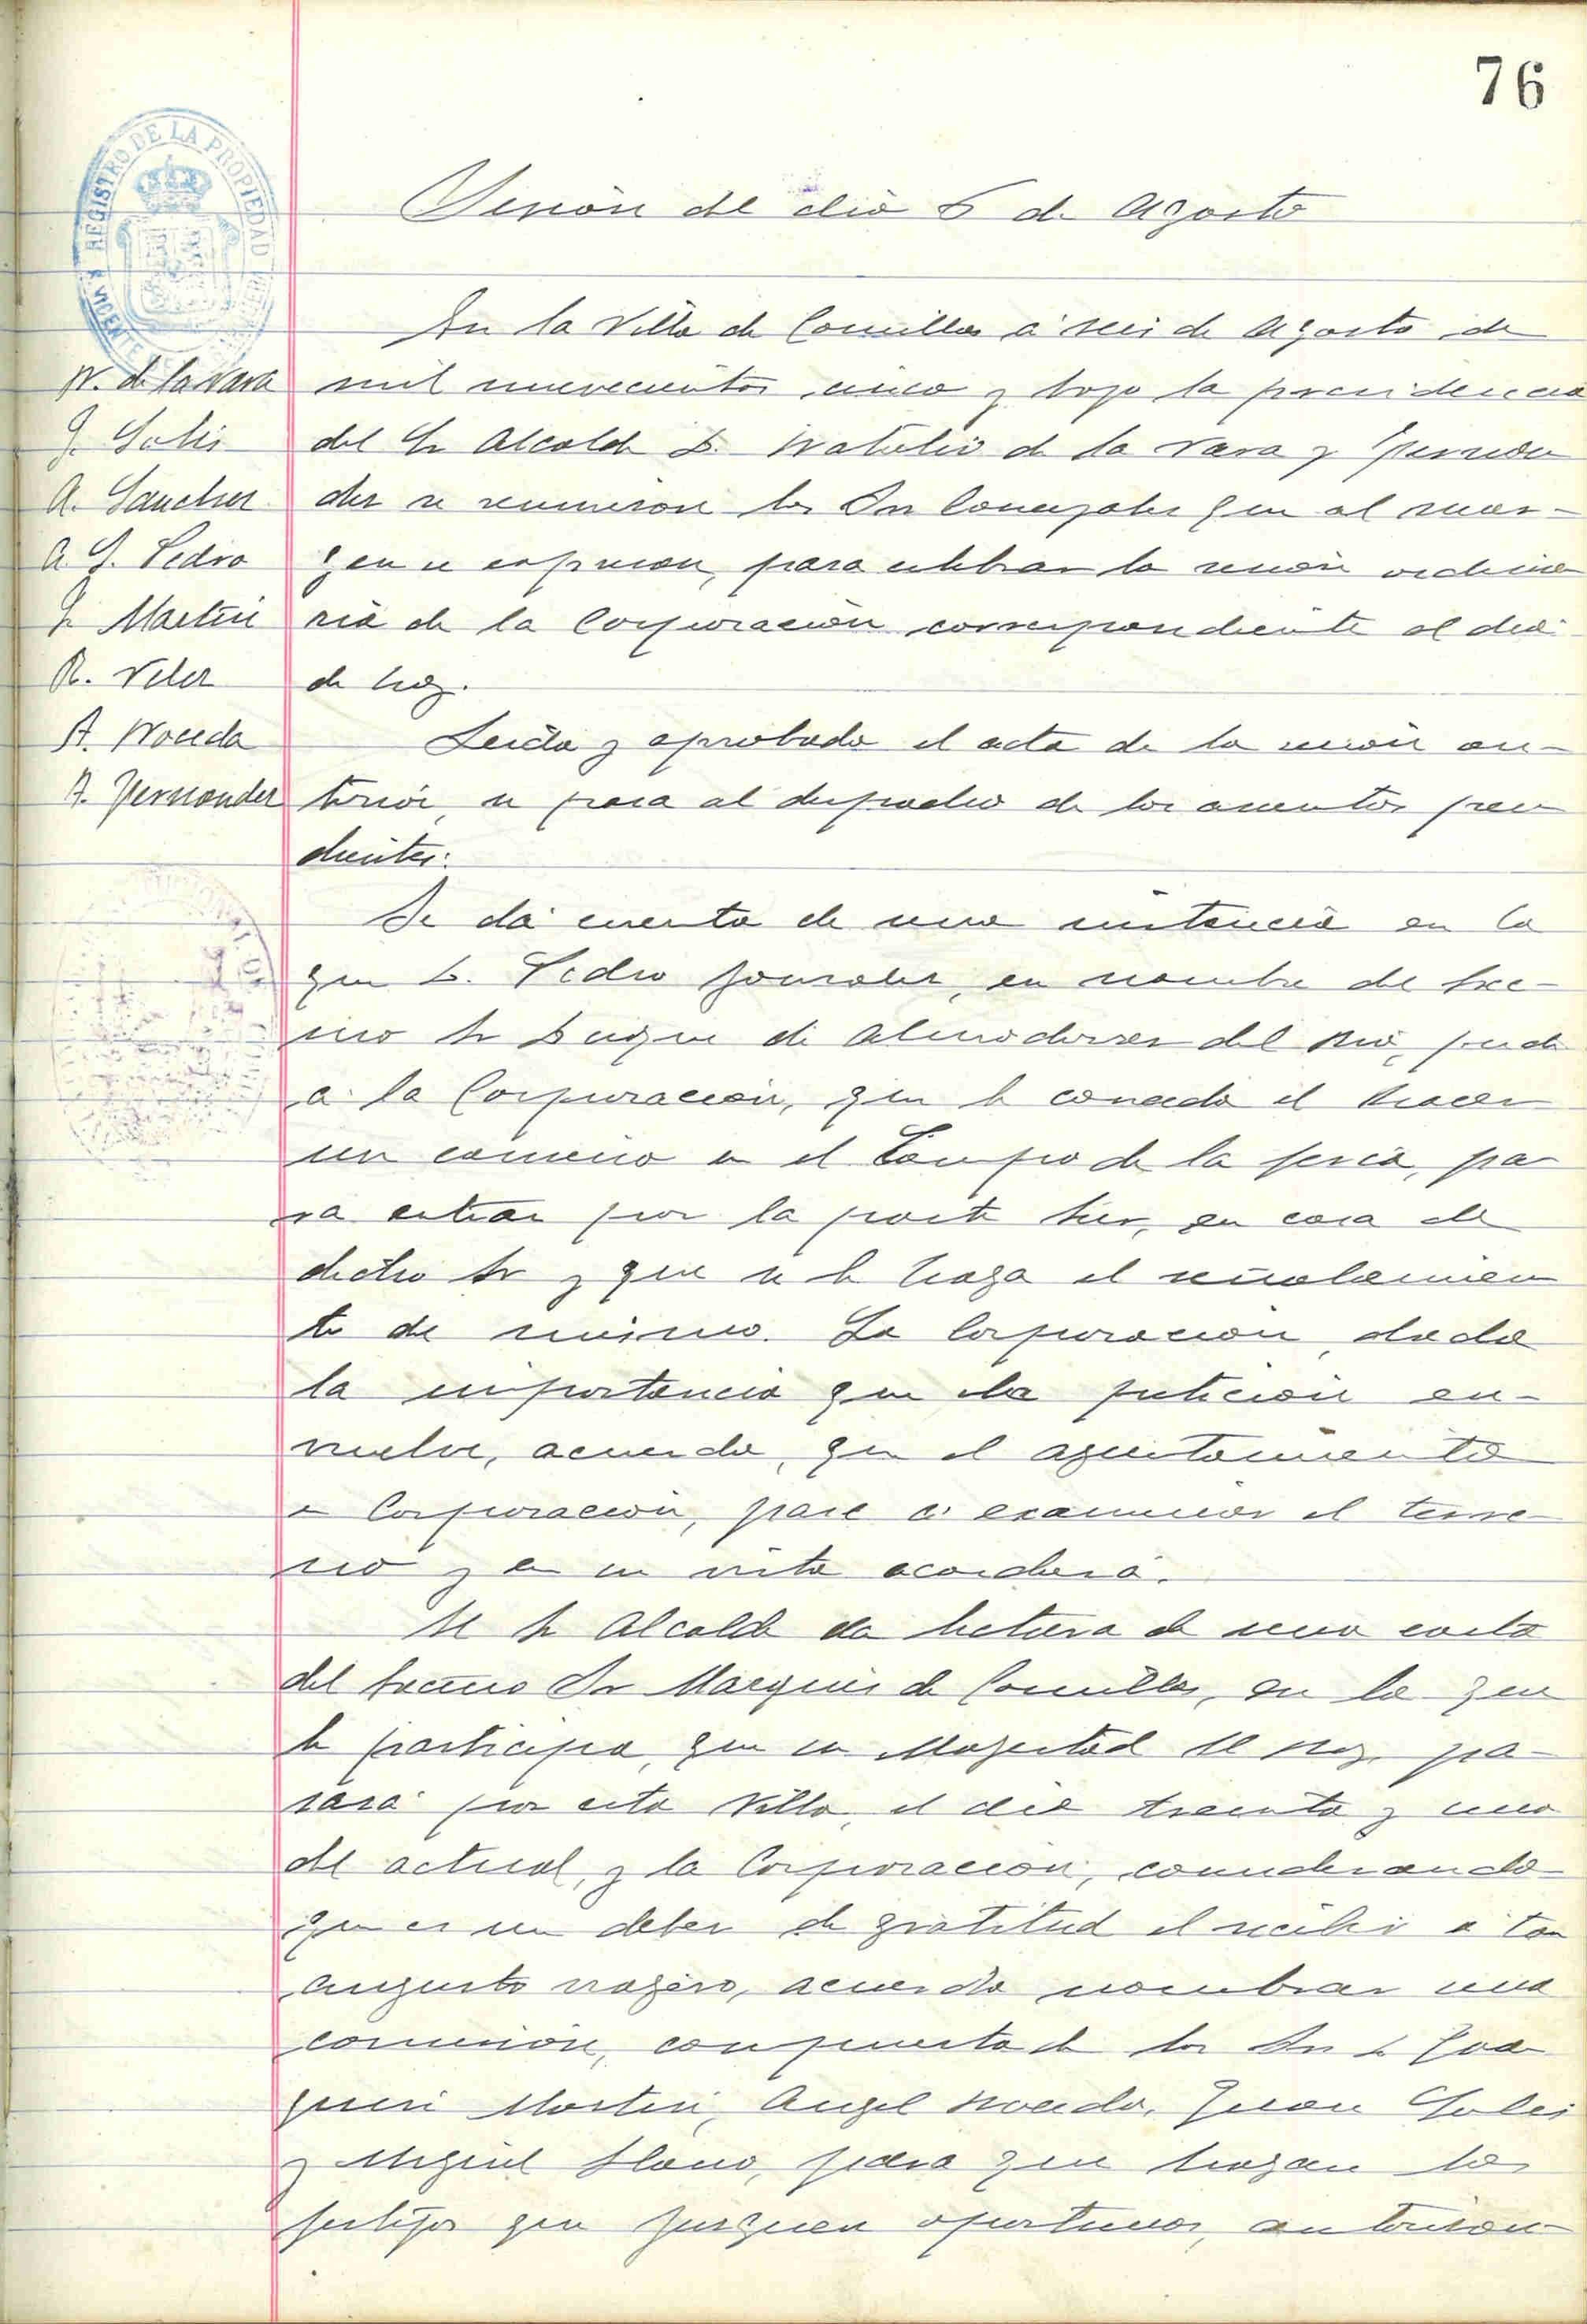 76
REGISTRO DE LA PROPIEDAD
VICENTE
Sesión del dia 6 de Agosto
N. de la Vara
J. Solis
A. Sanchez
A. G. Pedro
J. Martin
R. Velez
A. Noceda
A. Fernandez
En la Villa de Comillas á seis de Agosto de
mil novecientos cinco y bajo la presidencia
del Sr Alcalde D. Natalio de la Vara y Fernan
dez se reunieron los Srs Concejales que al mar-
gen se expresan, para celebrar la sesión ordina
ria de la Corporación correspondiente al dia
de hoy.
Leida y aprobada el acta de la sesión an-
terior, se pasa al despacho de los asuntos pen
dientes:
Se dá cuenta de una instancia en la
que D. Pedro Gonzalez, en nombre del Exce-
mo Sr Duque de Almodovar del Rio, pide
a la Corporación, que le conceda el hacer
un camino en el Campo de la feria, pa
ra entrar por la parte Sur, en casa de
dicho Sr y que se le haga el señalamien
to de mismo. La Corporación, dada
la importancia que la petición en-
vuelve, acuerda, que el ayuntamiento
o Corporación, pase á examinar el terre-
no y en su vista acordará.
El Sr Alcalde da lectura de una carta
del Excmo Sr Marques de Comillas, en la que
le participa, que su Magestad el Rey, pa-
sará por esta Villa, el dia treinta y uno
del actual, y la Corporación, considerando
que es un deber de gratitud el recibir a tan
augusto viajero, acuerda nombrar una
comisión, compuesta de los Srs D Joa
quin Martin, Angel Noceda, Juan Solis
y Miguel Llano, para que hagan los
festejos que juzguen oportunos, autorizan-